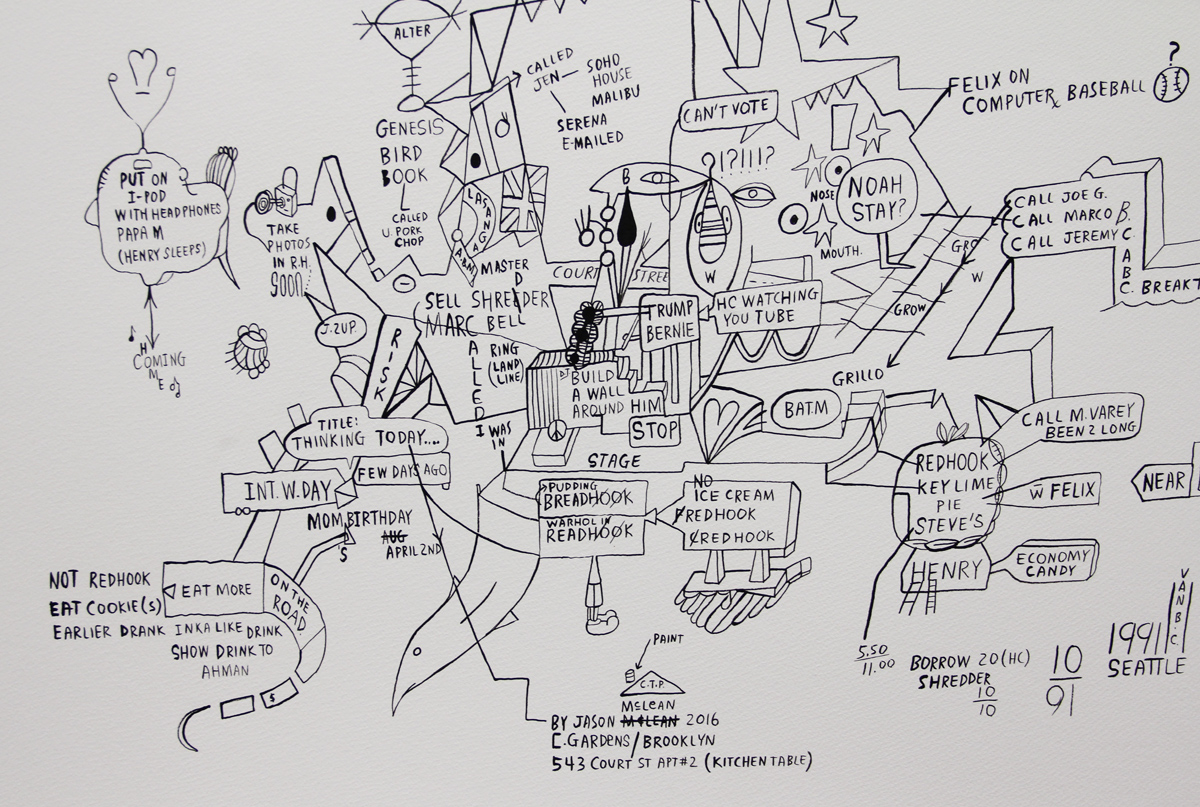 ALTER
GENESIS
BIRD
BOOK
CALLED
U. PORK
CHOP
CALLED
JEN
SOHO
HOUSE
MALIBU
SERENA
E-MAILED
CAN'T VOTE
!?!!?
FELIX ON
COMPUTER BASEBALL
?
PUT ON
I-POD
WITH HEADPHONES
PAPA M
(HENRY SLEEPS)
H
COMING
M
E
TAKE
PHOTOS
IN R.H.
SOON
J.2UP.
RISK
LASANGA
A.B.M
MASTER
D
SELL SHREDDER
MARC BELL
ALLED
RING
(LAND
LINE)
I WAS
IN
COURT STREE
B
W
NOSE
MOUTH.
NOAH
STAY?
CALL JOE G.
CALL MARCO B.
CALL JEREMY
C.
A
B
C. BREAKT
GRO
W
GROW
GRILLO
TRUMP
BERNIE
HC WATCHING
YOU TUBE
DJ
BUILD
A WALL
AROUND HIM
STOP
STAGE
BAT.M
CALL M.VAREY
BEEN 2 LONG
REDHOOK
KEY LIME
PIE
STEVE'S
W FELIX
NEAR
HENRY
ECONOMY
CANDY
TITLE:
THINKING TODAY....
FEW DAYS AGO
INT. W. DAY
MOM BIRTHDAY
AUG
APRIL 2ND
$
PUDDING
BREADHOOK
WARHOL IN
READHOOK
NO
ICE CREAM
FREDHOOK
CREDHOOK
NOT REDHOOK
EAT COOKIE(S)
EARLIER DRANK INKA LIKE DRINK
SHOW DRINK TO
AHMAN
EAT MORE
ON THE
ROAD.
$
PAINT
C.T.P.
McLEAN
BY JASON McLEAN 2016
C.GARDENS/BROOKLYN
543 COURT ST APT#2 (KITCHEN TABLE)
5.50
11.00
BORROW 20 (HC)
SHREDDER
10
10
10
91
1991
SEATTLE
VAN B.C.